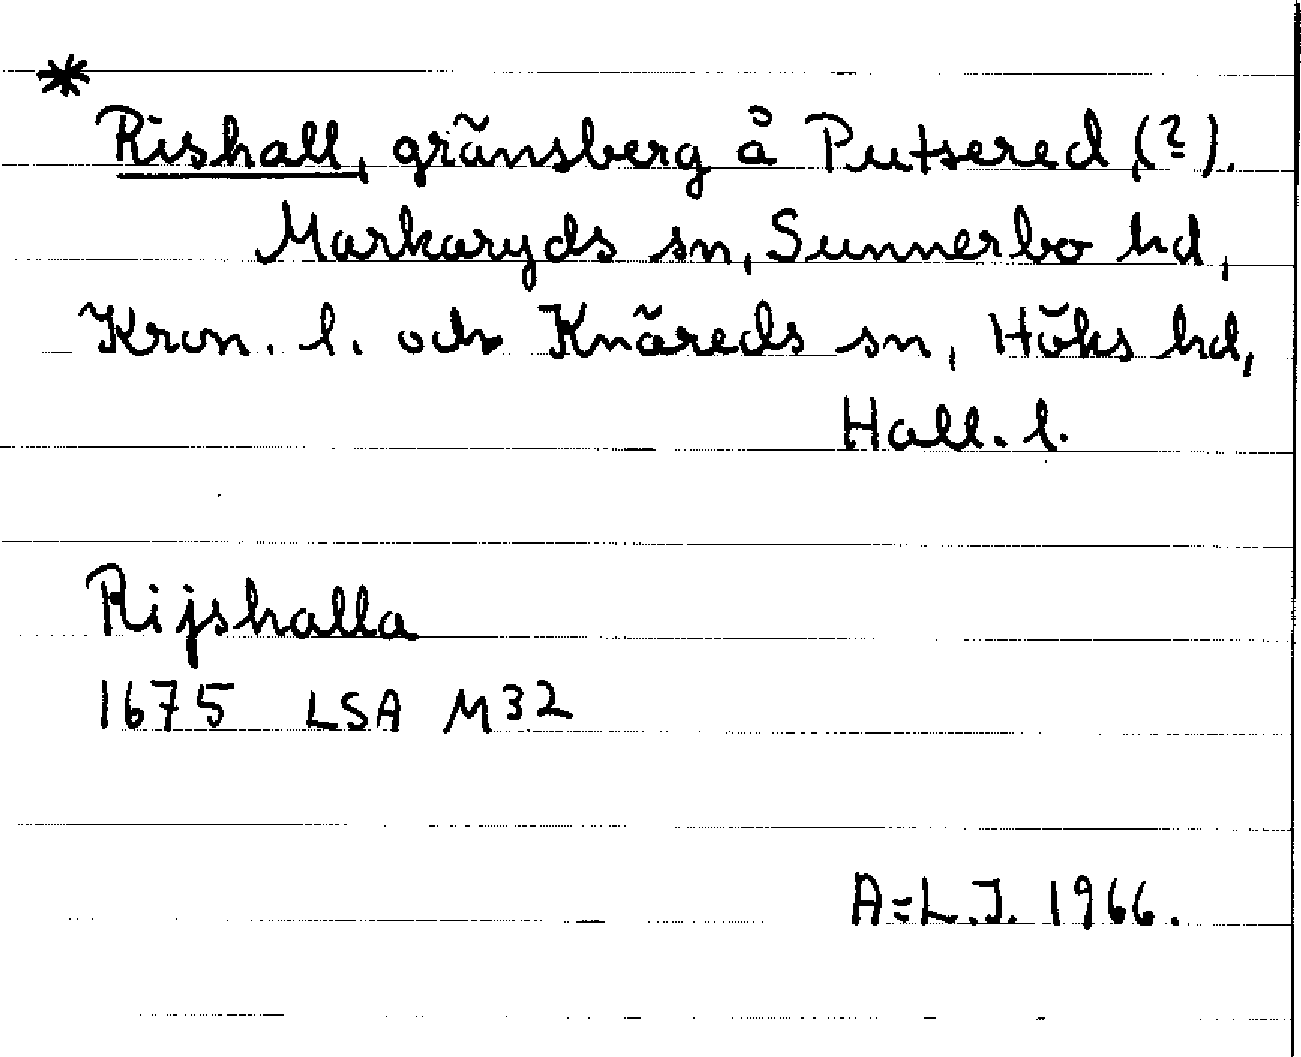 *
Rishall, gränsberg å Putsered (?).
Markaryds sn, Sunnerbo hd,
Kron. l. och Knäreds sn, Höks hd,
Hall. l.
Rijshalla
1675 LSA M32
A=L.J. 1966.